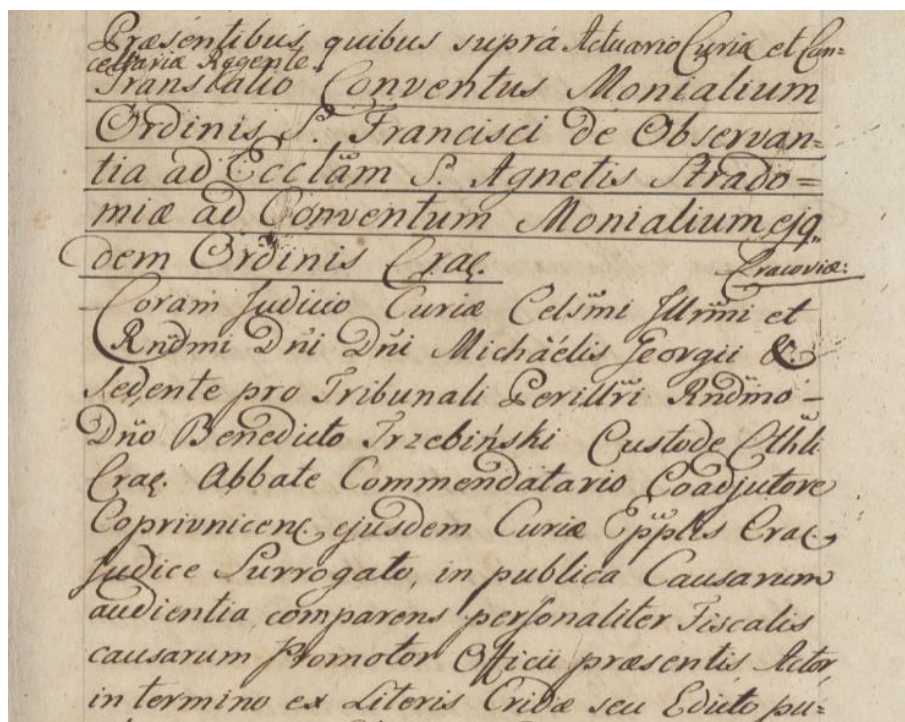 Præsentibus quibus supra Actuario Curiæ et Can=
cellariæ Regente.
Translatio Conventus Monialium
Ordinis S. Francisci de Observan=
tia ad Ecclãm S. Agnetis Strado=
miæ ad Conventum Monialium ejq„
dem Ordinis Crac.
Cracoviæ:
Coram Judicio Curiæ Celsm̃i Jllrm̃i et
Rndm̃i Dñi Dñi Michaëlis Georgii &.
Sedente pro Tribunali Perillr̃i Rndm̃o
Dño Benedicto Trzebiński Custode Cthli
Crac. Abbate Commendatario Coadjutore
Coprivnicenc. ejusdem Curiæ Epp̃lis Crac.
Judice Surrogato, in publica Causarum
audientia comparens personaliter Fiscalis
causarum Promotor Officii præsentis Actor,
in termino ex Literis Cridæ seu Edicto pu=